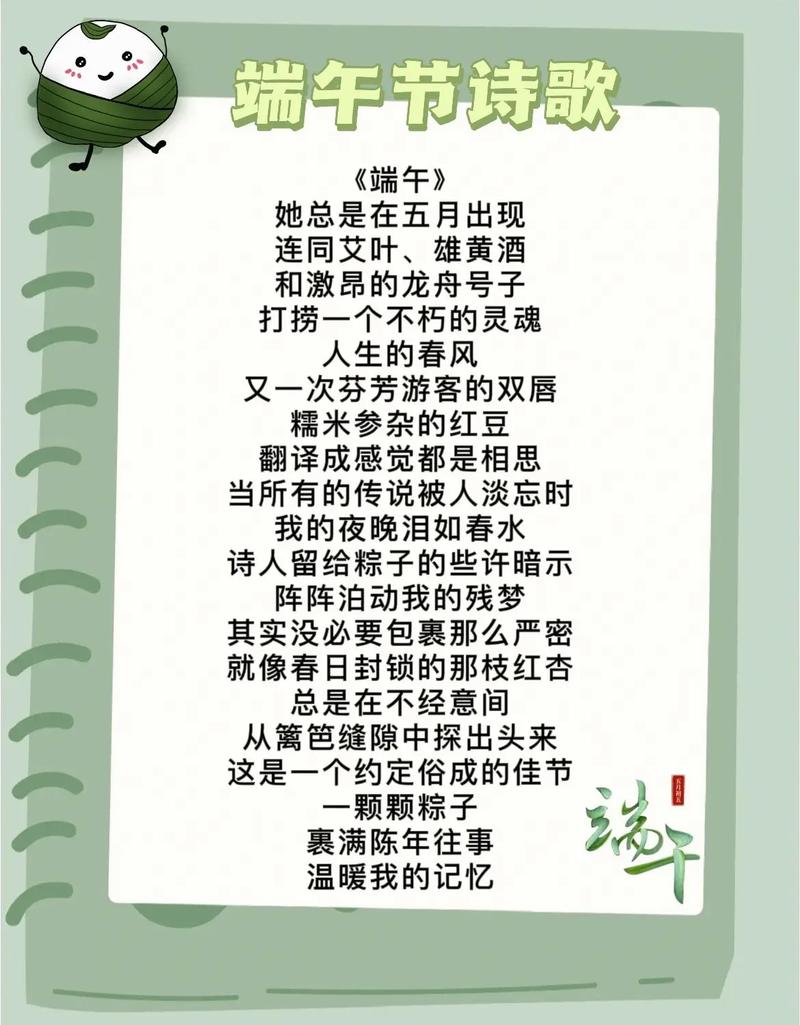 端午节诗歌
《端午》
她总是在五月出现
连同艾叶、雄黄酒
和激昂的龙舟号子
打捞一个不朽的灵魂
人生的春风
又一次芬芳游客的双唇
糯米参杂的红豆
翻译成感觉都是相思
当所有的传说被人淡忘时
我的夜晚泪如春水
诗人留给粽子的些许暗示
阵阵泊动我的残梦
其实没必要包裹那么严密
就像春日封锁的那枝红杏
总是在不经意间
从篱笆缝隙中探出头来
这是一个约定俗成的佳节
一颗颗粽子
裹满陈年往事
温暖我的记忆
端午
五月初五